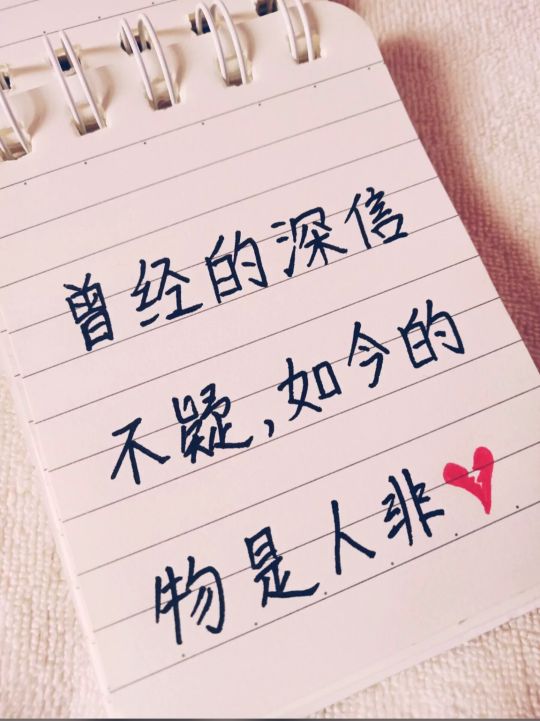 曾经的深信
不疑,如今的
物是人非